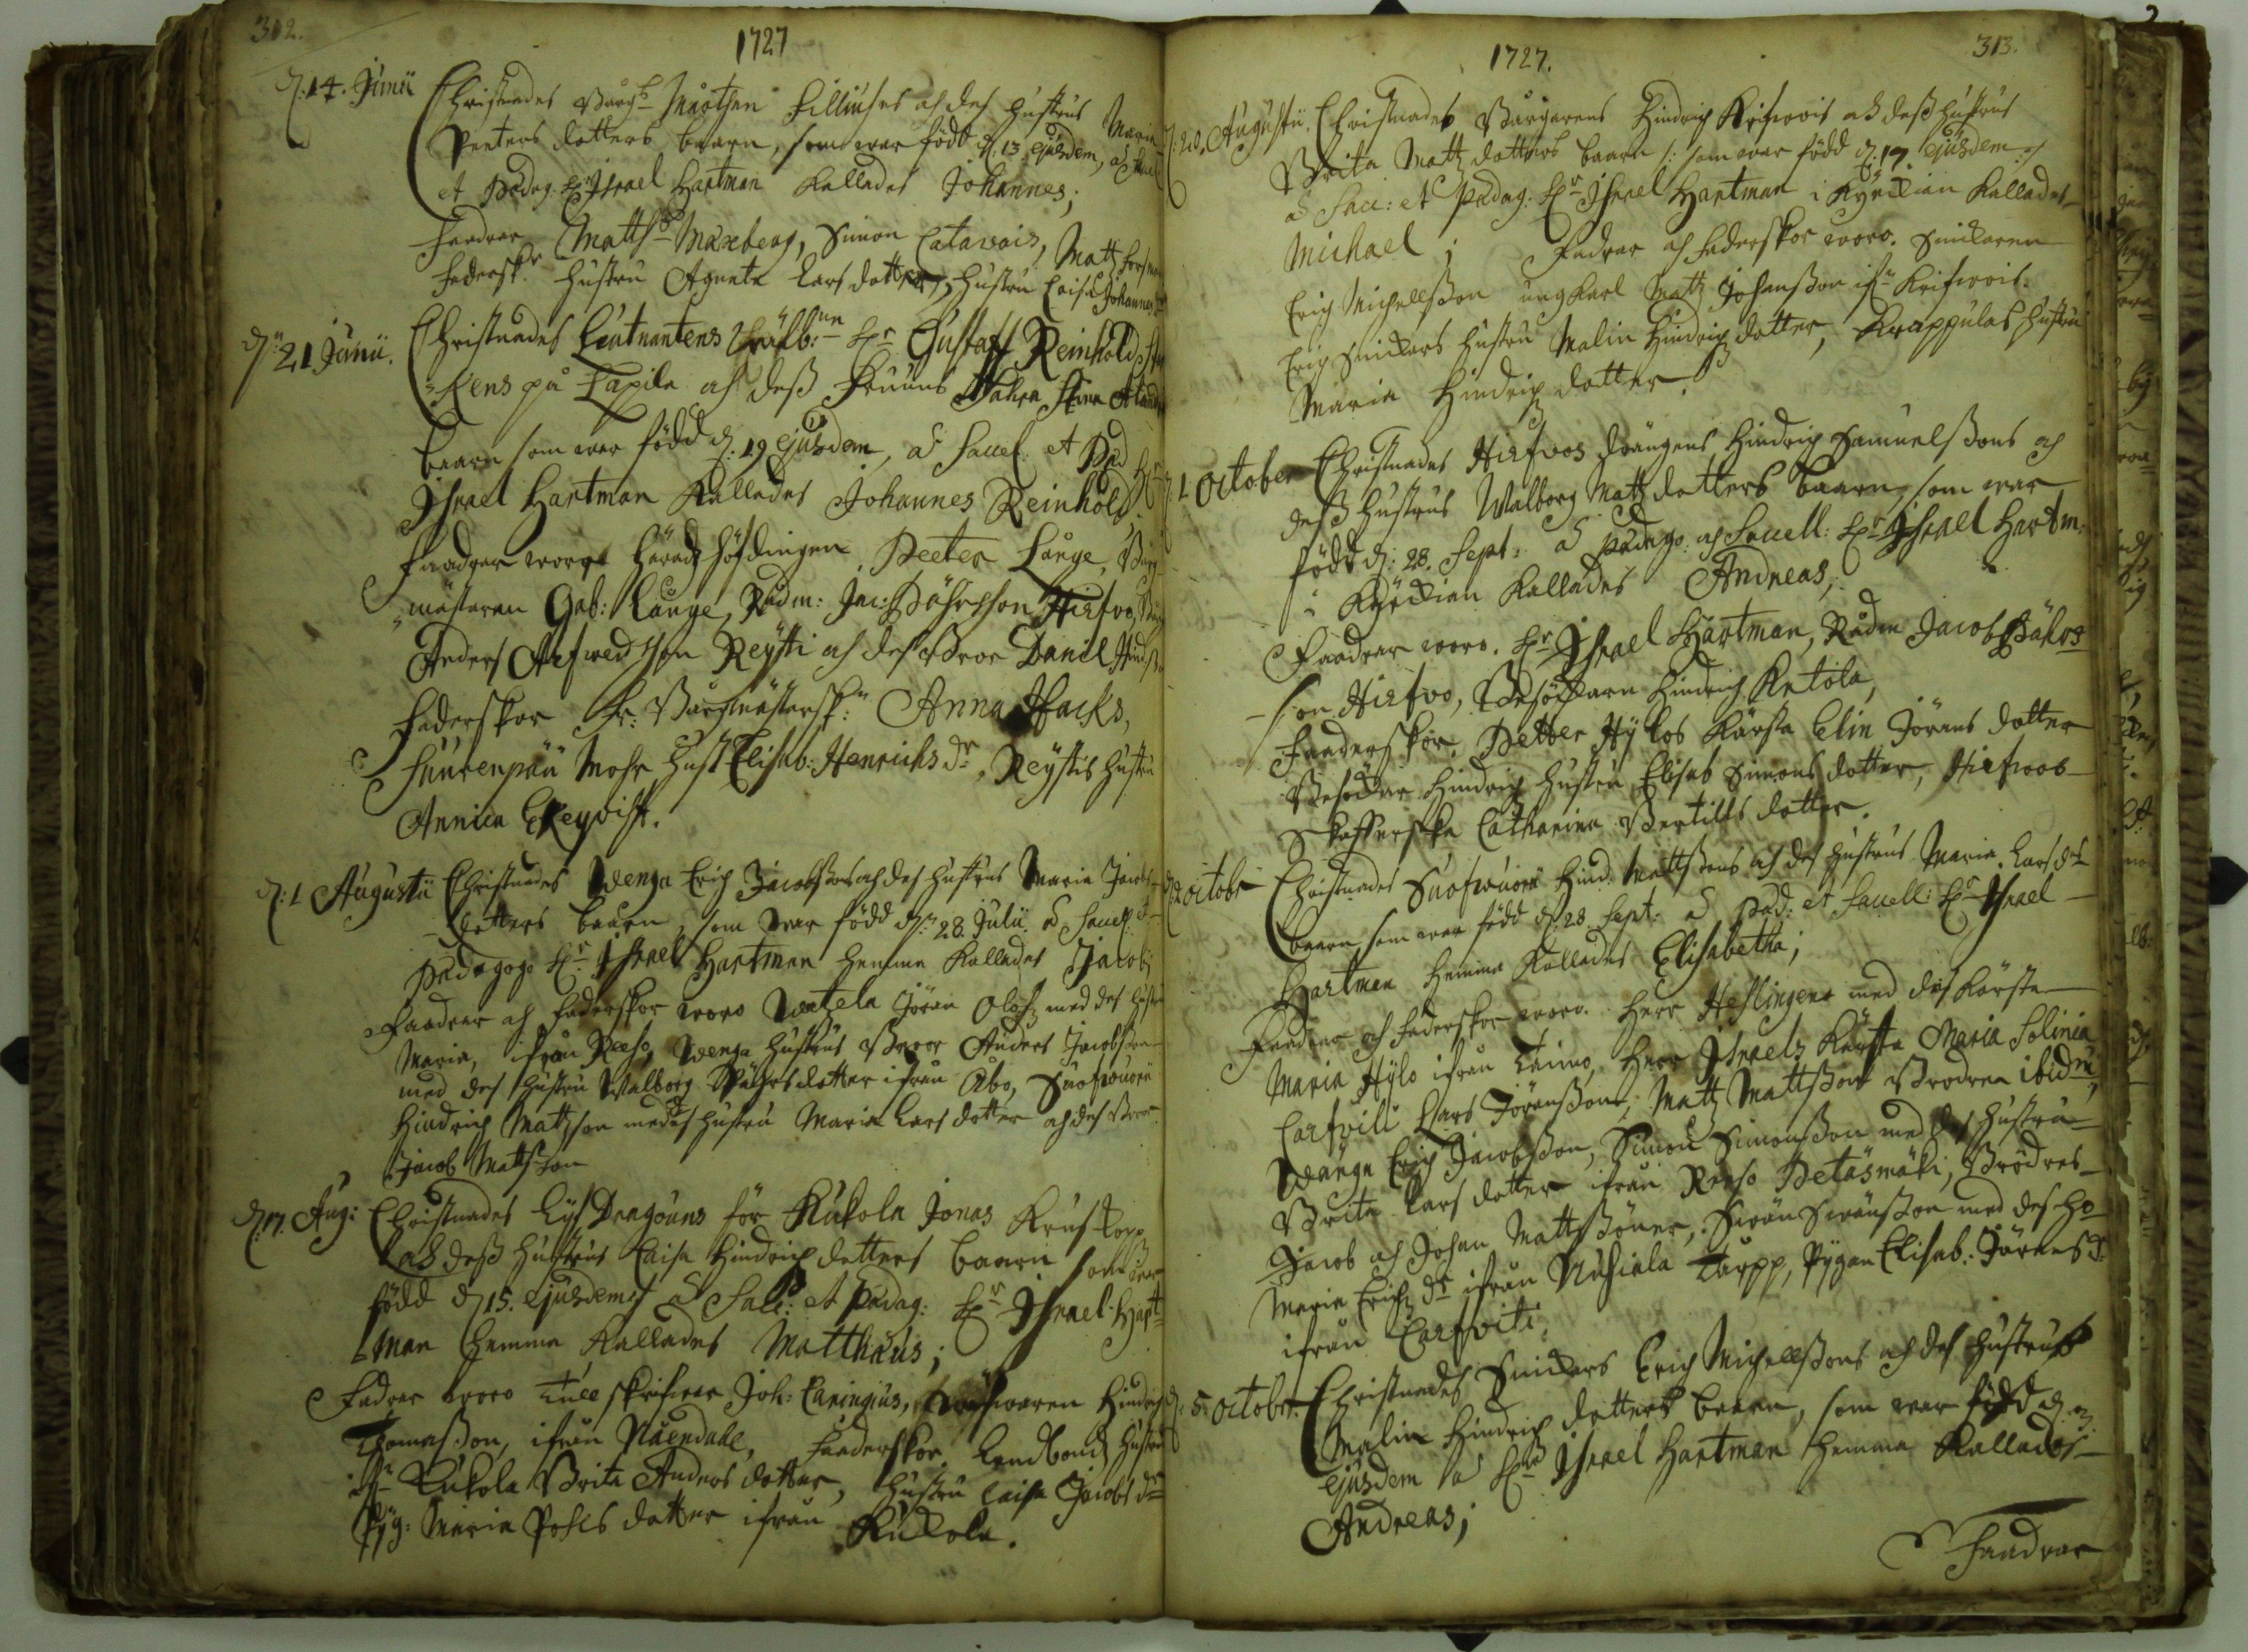 302.
1727
d. 14. Junii Christnades Mårthen Silliuses och des hustrus Maria
Peeters dotters baarn, som war född d. 13 ejusdem, a Sacell
et Pædag. Hr Israel Hartman kallades Johannes;
Faadrar Matths Maxberg, Simon Catavais, Matts
Fadersk. hustru Agneta Lars dotter, hustru Caisa Johannes
d. 21 Junii. Christnades Leutnantens Wälb:ne Hr Gustaff Reinhold
kens på Tapila och deß Fruuns Stina
baarn som war född d. 19 ejusdem, a Sacel. et Pæd Hr
Israel Hartman kallades Johannes Reinhold.
Faadrar woro Häradzhöfdingen Peeter Långe, Burg-
mästaren Gab: Långe, Rådm: Jac: Påhlsson Hirfvo,
Anders Arfwedsson Reysti och des Broor Daniel
Faderskor Fr. Burgmästersk: Anna Hacks,
Suurenpää Mohr Hust Elisab: Henrichs dr, Reystis hustru
Annica Ekeqvist.
d. 1 Augustii Christnades Wenga Erich Jacobssons och des hustrus Maria Jacobs
dotters baarn, som war född d. 28 Julii a Sacell. et
Pædagogo Hr Israel Hartman hemma kallades Jacob;
Faadrar och Faderskor woro Wetzela Jöran Olofs med des hustru
Maria, ifrån Reso, Wenga hustrus Broor Anders Jacobsson
med des hustru Walborg dotter ifrån Åbo, Suofwuori
Hindrich Mattsson med des hustru Maria Lars dotter och des Broor
Jacob Mattsson
d. 17. Aug: Christnades Lijf Dragouns för Kukola Jonas Krus
och deß hustrus Caisa Hindrich dotters baarn som war
född d. 15. ejusdem a Sace: et Pædag: Hr Israel Hart-
man hemma kallades Matthæus;
Fadrar woro Tull skrifwar Joh: Caringius, Hindrich
Thomasson, ifrån Nåendahl, Faaderskor. Landbondz hustru
Kukola Brita Anders dotter, hustru Caisa Jacobs dr
Pig: Maria Påhls dotter ifrån Kukola.
313.
1727.
d. 20. Augustii. Christnades Burgarens Hindrich Krifwois och deß hustrus
Brita Matts dotters baarn /: som war född d. 17. ejusdem :/
a Sace: et Pædag: Hr Israel Hartman i Kyrckian kallades
Michael; Fadrar och Faderskor woro. Snickaren
Erich Michellsson ung Karl Matts Johansson if:n Krifwois.
Erich Snickars hustru Malin Hindrich dotter, Krappulas hustru
Maria Hindrich dotter.
d. 1 October Christnades Hirfvos drängens Hindrich Samuelssons och
deß hustrus Walborg Matts dotters baarn, som war
född d: 28. Sept: a Pædago: och Sacell: Hr Israel Hartm:
i Kyrckian kallades Andreas;
Faadrar woro. Hr Israel Hartman, Rådm Jacob Påhls-
son Hirfvo, Besökarn Hindrich Ketola,
Faaderskor, Petter Hylos Kärsta Elin Jörans dotter
Besökar Hindrich hustru Elisab Simons dotter, Hirfwos
Skafferska Catharina Bertills dotter.
d. 2 octobr Christnades Suofwuori Hind: Mattssons och des hustrus Maria Lars drs
baarn, som war född d. 28 Sept: a Pæd: et Sacell: Hr Israel
Hartman hemma kallades Elisabetha;
Faadrar och Faderskor woro. Herr Heflingens med des Kärsta
Maria Hylo ifrån Taimo, Herr Israels Kärsta Maria Solinia
Carfviti Lars Jöransson, Matts Mattsson Brodren ibidm,
Wänga Erich Jacobsson, Simon Simonsson med des hustru
Brita Lars dotter ifrån Reeso Petäsmäki, Brödres
Jacob och Johan Matts söner, Swän Swänsson med des ho
Maria Erichs dr ifrån Nusiala Torpp, Pygan Elisab: Jörans dr
ifrån Carfviti.
d. 5. October. Christnades Snickars Erich Michellssons och des hustrus
Malin Hindrich dotters baarn, som war född d. 3.
ejusdem a Hr Israel Hartman hemma kallades
Andreas;
Faadrar